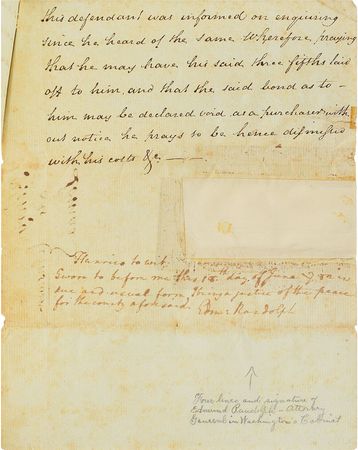 This defendant was informed on enquiring
since he heard of the same Wherefore, praying
that he may have his said three fifths laid
off to him, and that the said bond as to
him may be declared void as a purchaser with
out notice he prays to be hence dismissed
with his costs &c.
Henrico to wit
Sworn to before me this 18th day of June in
due and usual form, I being a justice of the peace
for the county aforesaid. Edm: Randolph
Four lines and signature of
Edmund Randolph - Attorney
General in Washington's Cabinet